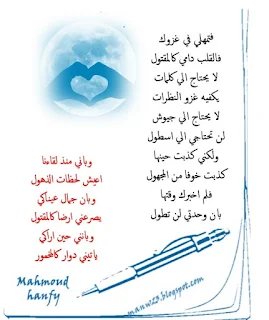 فتمهلي في غزوك
فالقلب دامي كالمقتول
لا يحتاج الي كلمات
يكفيه غزو النظرات
لا يحتاج الي جيوش
لن تحتاجي الي اسطول
ولكني كذبت حينها
كذبت خوفا من المجهول
فلم اخبرك وقتها
بان وحدتي لن تطول
وباني منذ لقاءنا
اعيش لحظات الذهول
وبان جمال عيناكي
يصرعني ارضا كالمقتول
وبانني حين اراكي
ياتيني دوار كالمخمور
Mahmoud
hanfy
manw23.blogspot.com